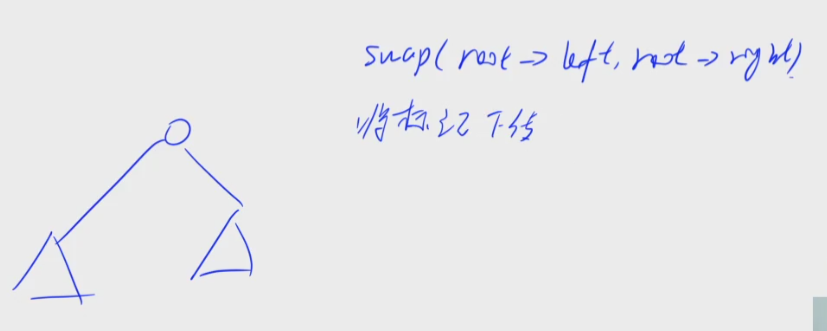 swap(root->left, root->right)
将标记下传